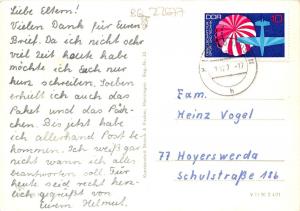 Liebe Eltern!
Vielen Dank für Euren
Brief. Da ich nicht sehr
viel Zeit heute habe
möchte ich Euch nur
kurz schreiben. Soeben
erhielt ich auch das
Paket und das Päck-
chen. Bis jetzt habe
ich allerhand Post be-
kommen. Ich weiß gar
nicht wann ich alles
beantworten soll. Für
heute seid recht herz-
lich gegrüßt von
Eurem Helmut.
DDR
10
Fam.
Heinz Vogel
77 Hoyerswerda
Schulstraße 18b